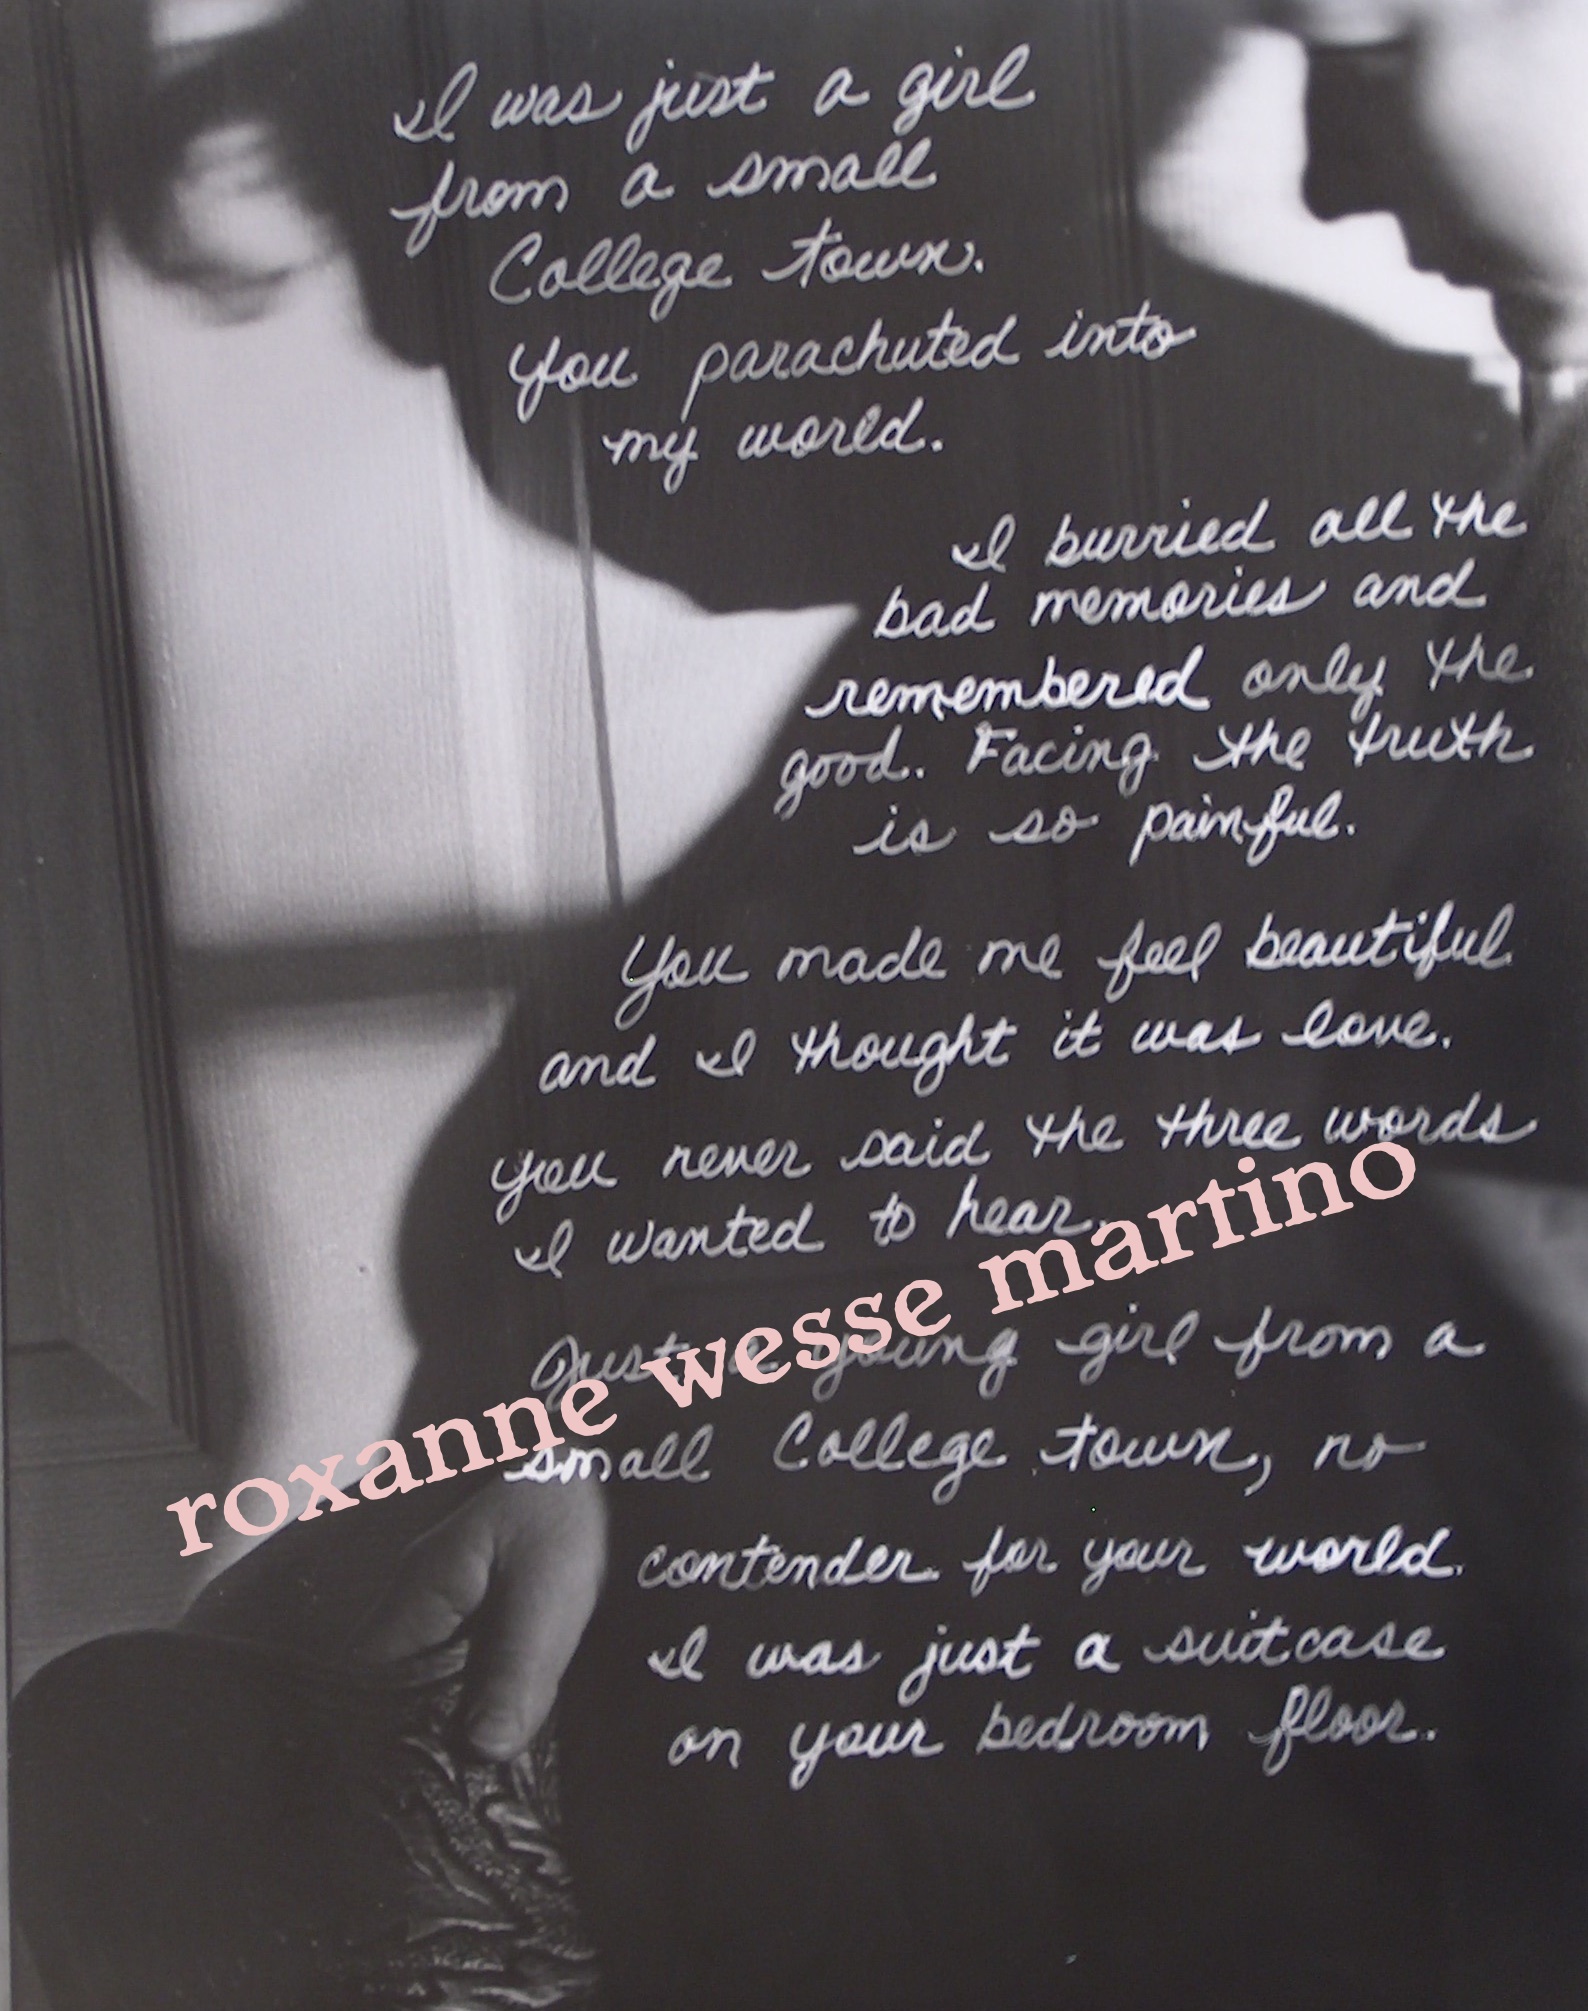 I was just a girl
from a small
College town.
You parachuted into
my world.
I burried all the
bad memories and
remembered only the
good. Facing the truth
is so painful.
You made me feel beautiful
and I thought it was love.
You never said the three words
I wanted to hear.
roxanne wesse martino
Just a young girl from a
small College town, no
contender for your world.
I was just a suitcase
on your bedroom floor.